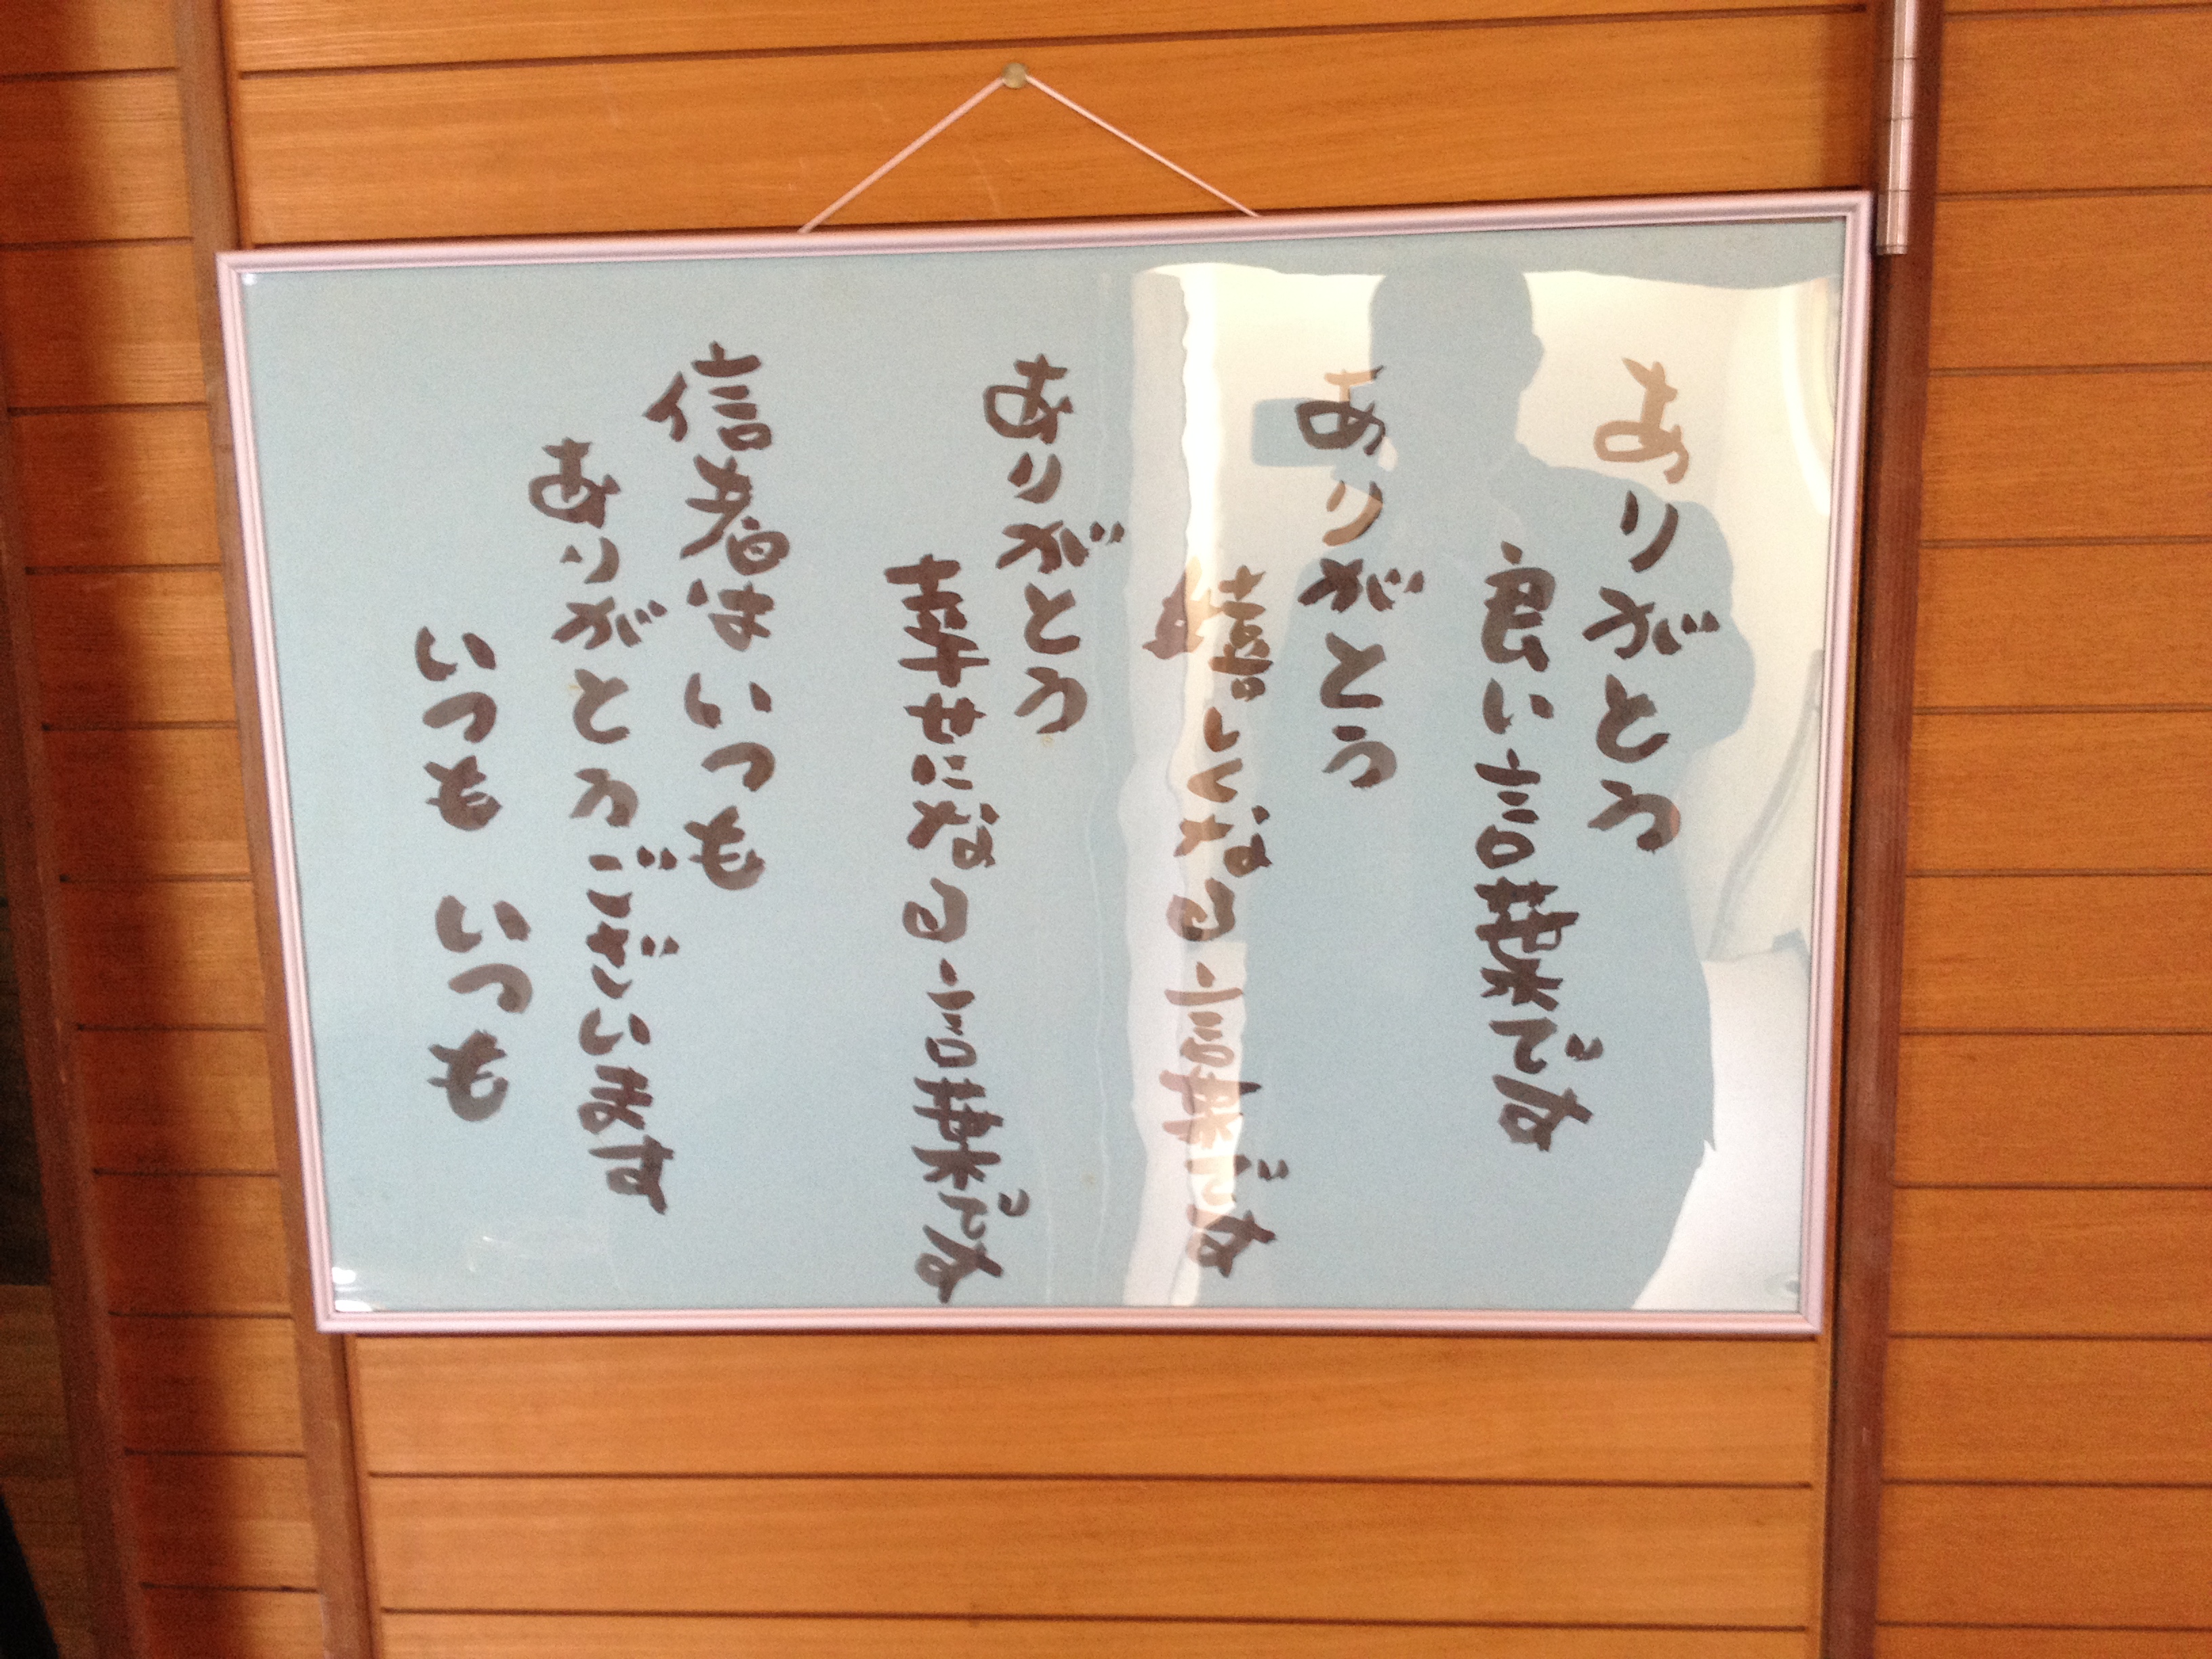 ありがとう
良い言葉です
ありがとう
嬉しくなる言葉です
ありがとう
幸せになる言葉です
信者はいつも
ありがとうございます
いつも いつも